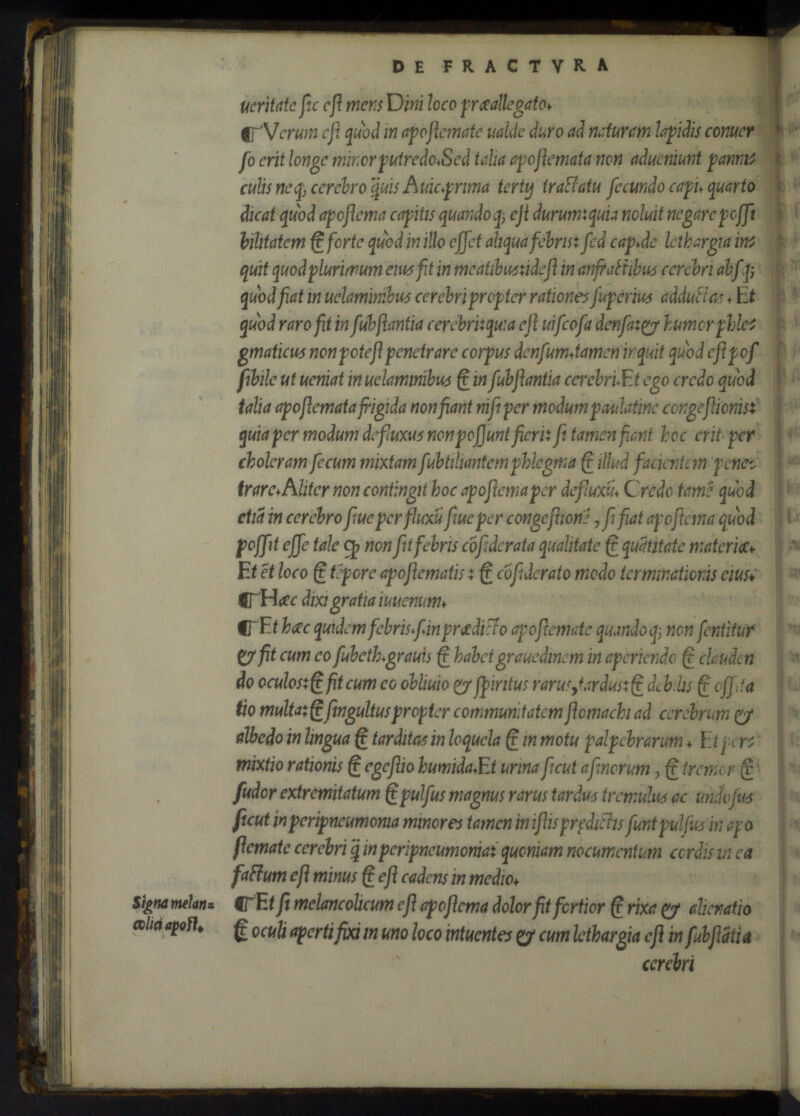 DE FRACTVRA
ueritate sic est mens Dini loco præallegato.
¶ Verum est quòd in apostemate ualde duro ad naturam lapidis conuer
so erit longe minor putredo. Sed talia apostemata non adueniunt pannis
culis neq; cerebro quis Auic. prima tertij tractatu secundo capi. quarto
dicat quòd apostema capitis quandoq; est durum: quia noluit negare possi
bilitatem & forte quòd in illo esset aliqua febris: sed cap. de lethargia in
quit quod plurimum eius fit in meatibus: idest in anfractibus cerebri absq;
quòd fiat in uelaminibus cerebri propter rationes superius adductas. Et
quòd raro fit in substantia cerebri: quia est uiscosa densa: & humor phle
gmaticus non potest penetrare corpus densum. tamen inquit quòd est pos
sibile ut ueniat in uelaminibus & in substantia cerebri. Et ego credo quòd
talia apostemata frigida non fiant nisi per modum paulatine congestionis:
quia per modum defluxus non possunt fieri: si tamen fiant hoc erit per
choleram secum mixtam subtiliantem phlegma & illud facientem pene
trare. Aliter non contingit hoc apostema per defluxū. Credo tamē quòd
etiā in cerebro siue per fluxū siue per congestionē, si fiat apostema quòd
possit esse tale ꝙ non sit febris cōsiderata qualitate & quātitate materiæ.
Et ēt loco & tēpore apostematis: & cōsiderato modo terminationis eius.
¶ Hæc dixi gratia iuuenum.
¶ Et hæc quidem febris. s. in prædicto apostemate quandoq; non sentitur
& fit cum eo subeth. grauis & habet grauedinem in aperiendo & clauden
do oculos: & fit cum eo obliuio & spiritus rarus, tardus: & debilis & oscita
tio multa: & singultus propter communitatem stomachi ad cerebrum &
albedo in lingua & tarditas in loquela & in motu palpebrarum. Et per
mixtio rationis & egestio humida. Et urina sicut asinorum, & tremor &
sudor extremitatum & pulsus magnus rarus tardus tremulus ac undosus
sicut in peripneumonia minores tamen in istis prędictis sunt pulsus in apo
stemate cerebri q̄ in peripneumonia: quoniam nocumentum cordis in ea
factum est minus & est cadens in medio.
Signa melan=
colici apost.
¶ Et si melancolicum est apostema dolor fit fortior & rixa & alienatio
& oculi aperti fixi in uno loco intuentes & cum lethargia est in substātia
cerebri